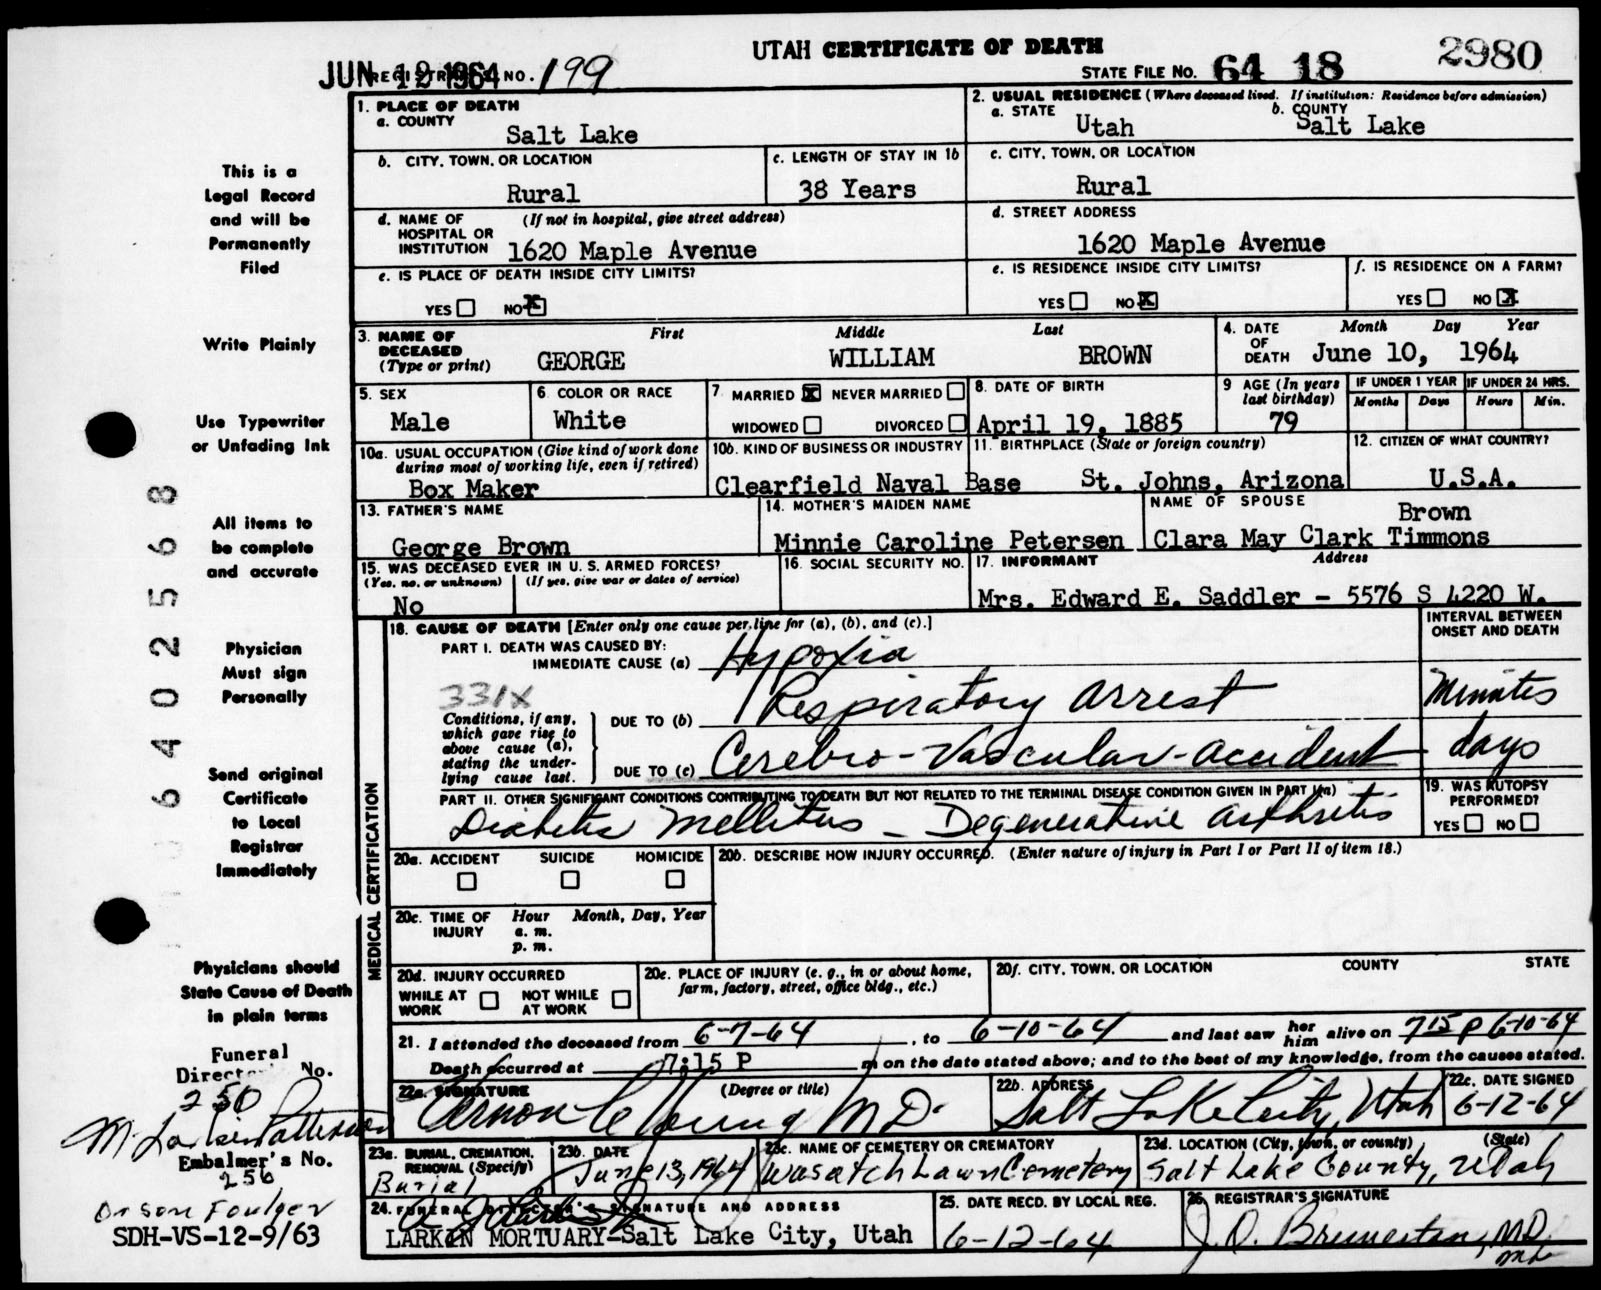 UTAH CERTIFICATE OF DEATH
JUN 12 1964 REGISTRAR'S NO. 199
STATE FILE NO. 64 18 2980
1. PLACE OF DEATH
a. COUNTY
Salt Lake
2. USUAL RESIDENCE (Where deceased lived. If institution: Residence before admission)
a. STATE Utah b. COUNTY Salt Lake
b. CITY, TOWN, OR LOCATION
Rural
c. LENGTH OF STAY IN 1b
38 Years
c. CITY, TOWN, OR LOCATION
Rural
d. NAME OF HOSPITAL OR INSTITUTION (If not in hospital, give street address)
1620 Maple Avenue
d. STREET ADDRESS
1620 Maple Avenue
e. IS PLACE OF DEATH INSIDE CITY LIMITS?
YES NO X
e. IS RESIDENCE INSIDE CITY LIMITS?
YES NO X
f. IS RESIDENCE ON A FARM?
YES NO X
3. NAME OF DECEASED (Type or print)
First Middle Last
GEORGE WILLIAM BROWN
4. DATE OF DEATH Month Day Year
June 10, 1964
5. SEX
Male
6. COLOR OR RACE
White
7. MARRIED X NEVER MARRIED
WIDOWED DIVORCED
8. DATE OF BIRTH
April 19, 1885
9 AGE (In years last birthday)
79
IF UNDER 1 YEAR
Months Days
IF UNDER 24 HRS.
Hours Min.
10a. USUAL OCCUPATION (Give kind of work done during most of working life, even if retired)
Box Maker
10b. KIND OF BUSINESS OR INDUSTRY
Clearfield Naval Base
11. BIRTHPLACE (State or foreign country)
St. Johns, Arizona
12. CITIZEN OF WHAT COUNTRY?
U.S.A.
13. FATHER'S NAME
George Brown
14. MOTHER'S MAIDEN NAME
Minnie Caroline Petersen
NAME OF SPOUSE
Brown
Clara May Clark Timmons
15. WAS DECEASED EVER IN U. S. ARMED FORCES?
(Yes, no, or unknown) (If yes, give war or dates of service)
No
16. SOCIAL SECURITY NO.
17. INFORMANT Address
Mrs. Edward E. Saddler - 5576 S 4220 W.
MEDICAL CERTIFICATION
18. CAUSE OF DEATH [Enter only one cause per line for (a), (b), and (c).]
INTERVAL BETWEEN ONSET AND DEATH
PART I. DEATH WAS CAUSED BY:
IMMEDIATE CAUSE (a) Hypoxia
331X
Conditions, if any, which gave rise to above cause (a), stating the underlying cause last.
DUE TO (b) Respiratory Arrest Minutes
DUE TO (c) Cerebro-Vascular-Accident days
PART II. OTHER SIGNIFICANT CONDITIONS CONTRIBUTING TO DEATH BUT NOT RELATED TO THE TERMINAL DISEASE CONDITION GIVEN IN PART I(a)
Diabetis Mellitus - Degenerative arthritis
19. WAS AUTOPSY PERFORMED?
YES NO
20a. ACCIDENT SUICIDE HOMICIDE
20b. DESCRIBE HOW INJURY OCCURRED. (Enter nature of injury in Part I or Part II of item 18.)
20c. TIME OF INJURY Hour Month, Day, Year
a. m.
p. m.
20d. INJURY OCCURRED
WHILE AT WORK NOT WHILE AT WORK
20e. PLACE OF INJURY (e. g., in or about home, farm, factory, street, office bldg., etc.)
20f. CITY, TOWN, OR LOCATION COUNTY STATE
21. I attended the deceased from 6-7-64, to 6-10-64 and last saw her him alive on 715 P 6-10-64
Death Occurred at 7:15 P m on the date stated above; and to the best of my knowledge, from the causes stated.
22a. SIGNATURE (Degree or title)
Vernon Le Young MD.
22b. ADDRESS
Salt Lake City, Utah
22c. DATE SIGNED
6-12-64
23a. BURIAL, CREMATION, REMOVAL (Specify)
Burial
23b. DATE
June 13, 1964
23c. NAME OF CEMETERY OR CREMATORY
Wasatch Lawn Cemetery
23d. LOCATION (City, town, or county) (State)
Salt Lake County, Utah
24. FUNERAL DIRECTOR'S SIGNATURE AND ADDRESS
LARKIN MORTUARY-Salt Lake City, Utah
25. DATE RECD. BY LOCAL REG.
6-12-64
26. REGISTRAR'S SIGNATURE
MD
This is a
Legal Record
and will be
Permanently
Filed
Write Plainly
Use Typewriter
or Unfading Ink
All items to
be complete
and accurate
Physician
Must sign
Personally
Send original
Certificate
to Local
Registrar
Immediately
Physicians should
State Cause of Death
in plain terms
64025568
Funeral
Director's No.
250
Embalmer's No.
256
Orson Foulger
SDH-VS-12-9/63